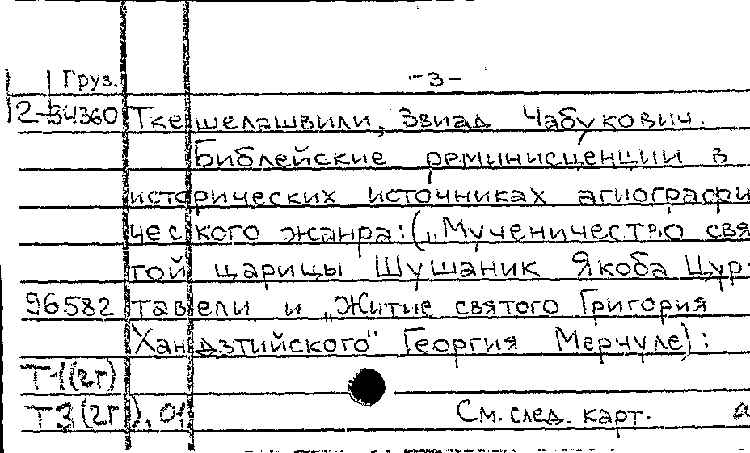 Груз. -3-
12-34360 Ткешелашвили, Звиад Чабукович.
Библейские реминисценции в
исторических источниках агиографи
ческого жанра: („Мученичество свя
той царицы Шушаник Якоба Цур-
96582 тавели и „Житие святого Григория
Хандзтийского" Георгия Мерчуле):
Т1(2г)
Т3(2г), 01
См. след. карт.